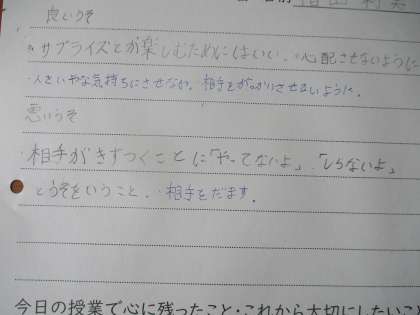 良いうそ
・サプライズとか楽しむためにはいい。・心配させないように
・人をいやな気持ちにさせない。相手をがっかりさせないように。
悪いうそ
・相手がきずつくことに「やってないよ」、「しらないよ」
とうそをいうこと。・相手をだます。
今日の授業で心に残ったこと・これから大切にしたいこ